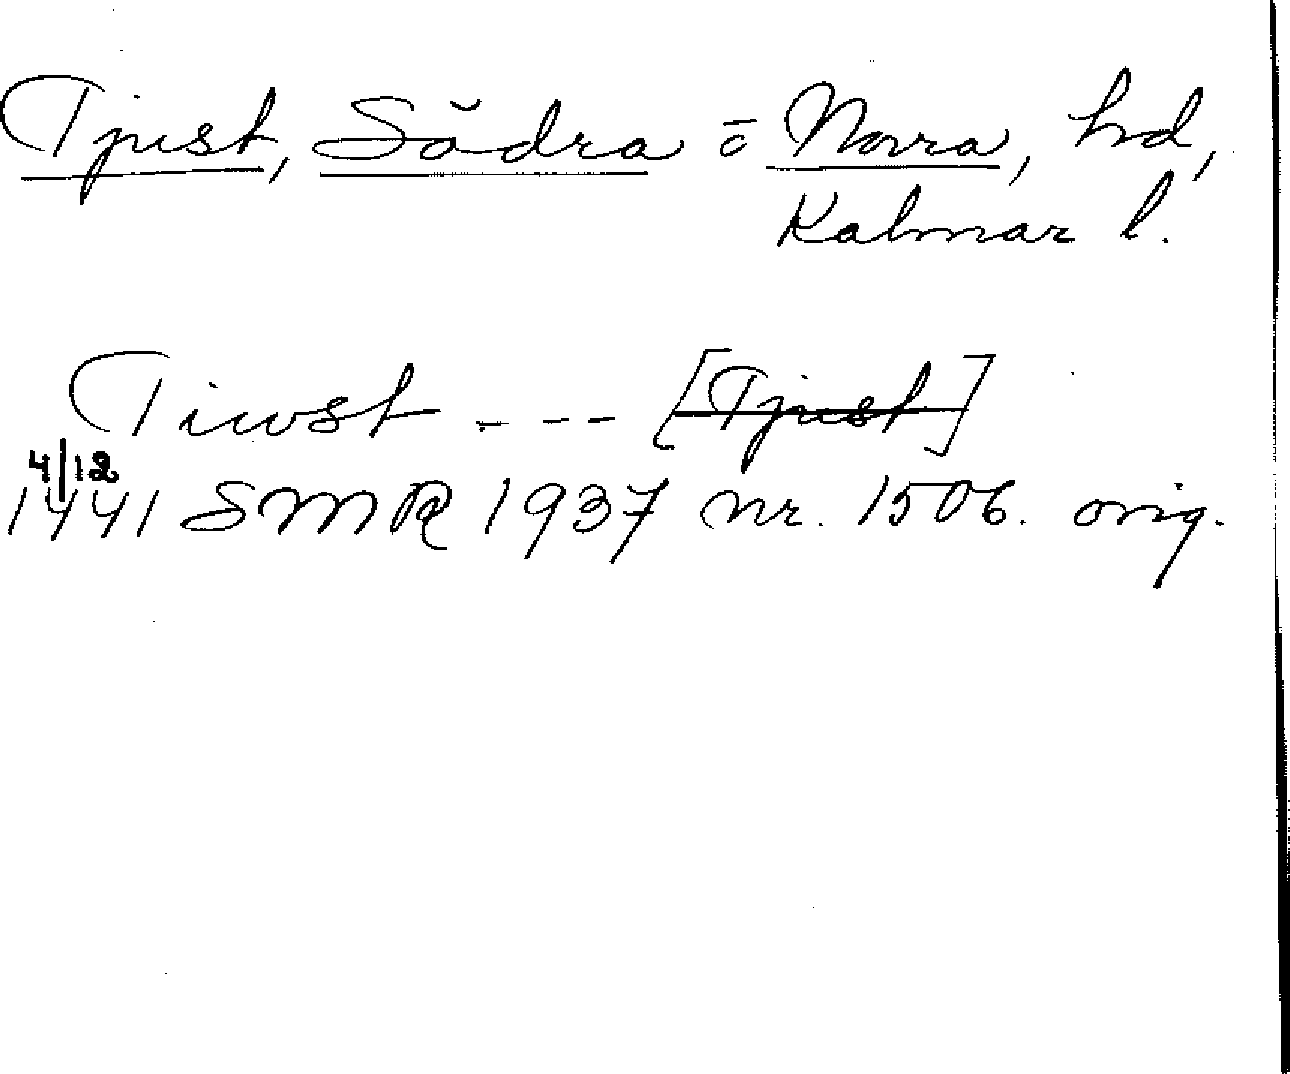 Tjust, Södra o Norra, hd,
Kalmar l.
Tiwst - - - [Tjust]
4/12
1441 SMR 1937 nr. 1506. orig.